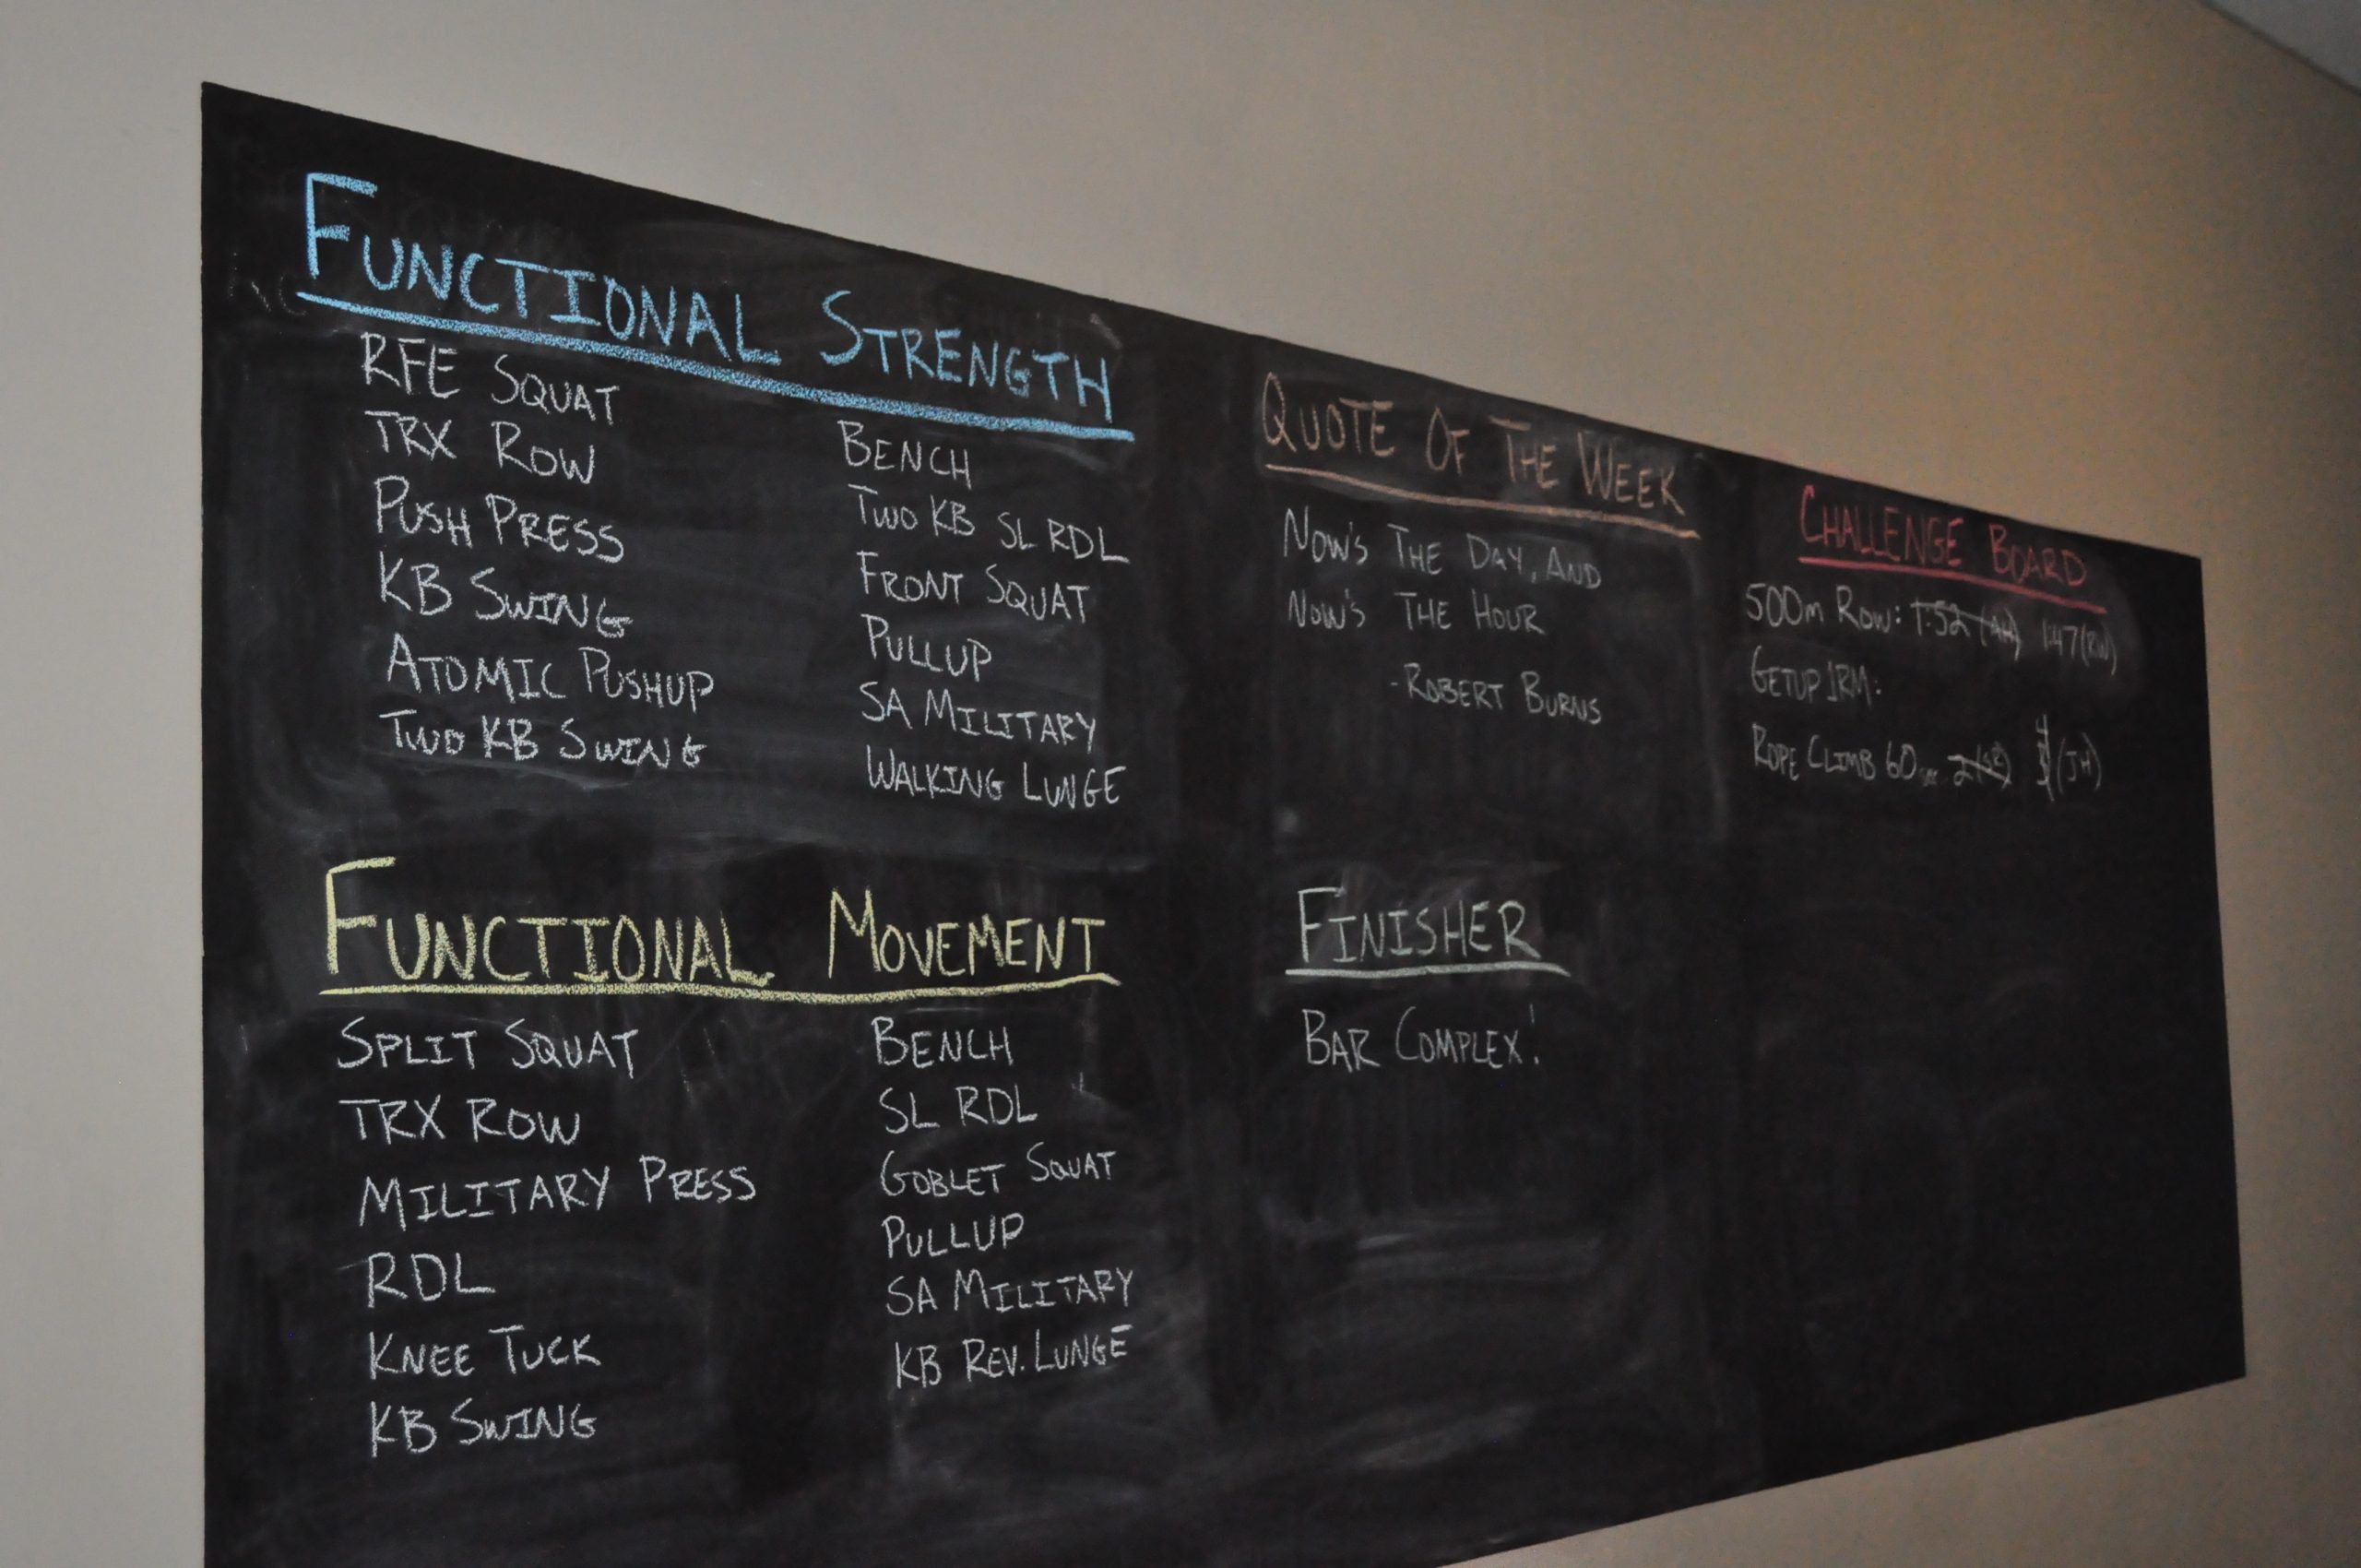 FUNCTIONAL STRENGTH
RFE SQUAT
TRX ROW
PUSH PRESS
KB SWING
ATOMIC PUSHUP
TWO KB SWING
BENCH
TWO KB SL RDL
FRONT SQUAT
PULLUP
SA MILITARY
WALKING LUNGE
FUNCTIONAL MOVEMENT
SPLIT SQUAT
TRX ROW
MILITARY PRESS
RDL
KNEE TUCK
KB SWING
BENCH
SL RDL
GOBLET SQUAT
PULLUP
SA MILITARY
KB REV. LUNGE
QUOTE OF THE WEEK
NOW'S THE DAY, AND
NOW'S THE HOUR
-ROBERT BURNS
FINISHER
BAR COMPLEX!
CHALLENGE BOARD
500m ROW: 1:52 (AH) 1:47 (RW)
GETUP 1RM:
ROPE CLIMB 60 sec 2 4 (JH)